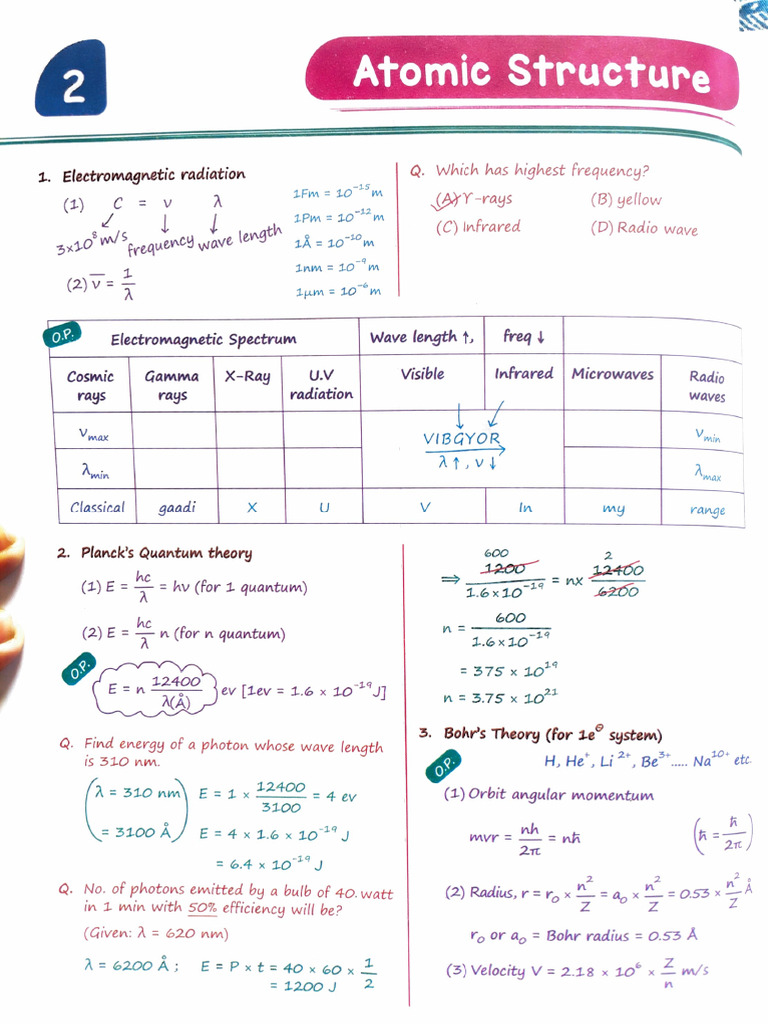 2
Atomic Structure
1. Electromagnetic radiation
(1) C = ν λ
3×10⁸ m/s frequency wave length
(2) ν̅ = 1/λ
1Fm = 10⁻¹⁵ m
1Pm = 10⁻¹² m
1Å = 10⁻¹⁰ m
1nm = 10⁻⁹ m
1μm = 10⁻⁶ m
Q. Which has highest frequency?
(A) ϒ-rays (B) yellow
(C) Infrared (D) Radio wave
O.P.
Electromagnetic Spectrum Wave length ↑, freq ↓
Cosmic rays Gamma rays X-Ray U.V radiation Visible Infrared Microwaves Radio waves
νmax VIBGYOR νmin
λmin λ ↑, ν ↓ λmax
Classical gaadi X U V In my range
2. Planck's Quantum theory
(1) E = hc/λ = hν (for 1 quantum)
(2) E = hc/λ n (for n quantum)
O.P.
E = n 12400/λ(Å) ev [1ev = 1.6 × 10⁻¹⁹ J]
Q. Find energy of a photon whose wave length
is 310 nm.
(λ = 310 nm E = 1 × 12400/3100 = 4 ev
= 3100 Å) E = 4 × 1.6 × 10⁻¹⁹ J
= 6.4 × 10⁻¹⁹ J
Q. No. of photons emitted by a bulb of 40. watt
in 1 min with 50% efficiency will be?
(Given: λ = 620 nm)
λ = 6200 Å ; E = P × t = 40 × 60 × 1/2
= 1200 J
600 2
⇒ 1200/1.6×10⁻¹⁹ = n× 12400/6200
n = 600/1.6 × 10⁻¹⁹
= 375 × 10¹⁹
n = 3.75 × 10²¹
3. Bohr's Theory (for 1e⊖ system)
O.P.
H, He⁺, Li ²⁺, Be³⁺..... Na¹⁰⁺ etc.
(1) Orbit angular momentum
mvr = nh/2π = nħ (ħ = ħ/2π)
(2) Radius, r = r₀ × n²/Z = a₀ × n²/Z = 0.53 × n²/Z Å
r₀ or a₀ = Bohr radius = 0.53 Å
(3) Velocity V = 2.18 × 10⁶ × Z/n m/s